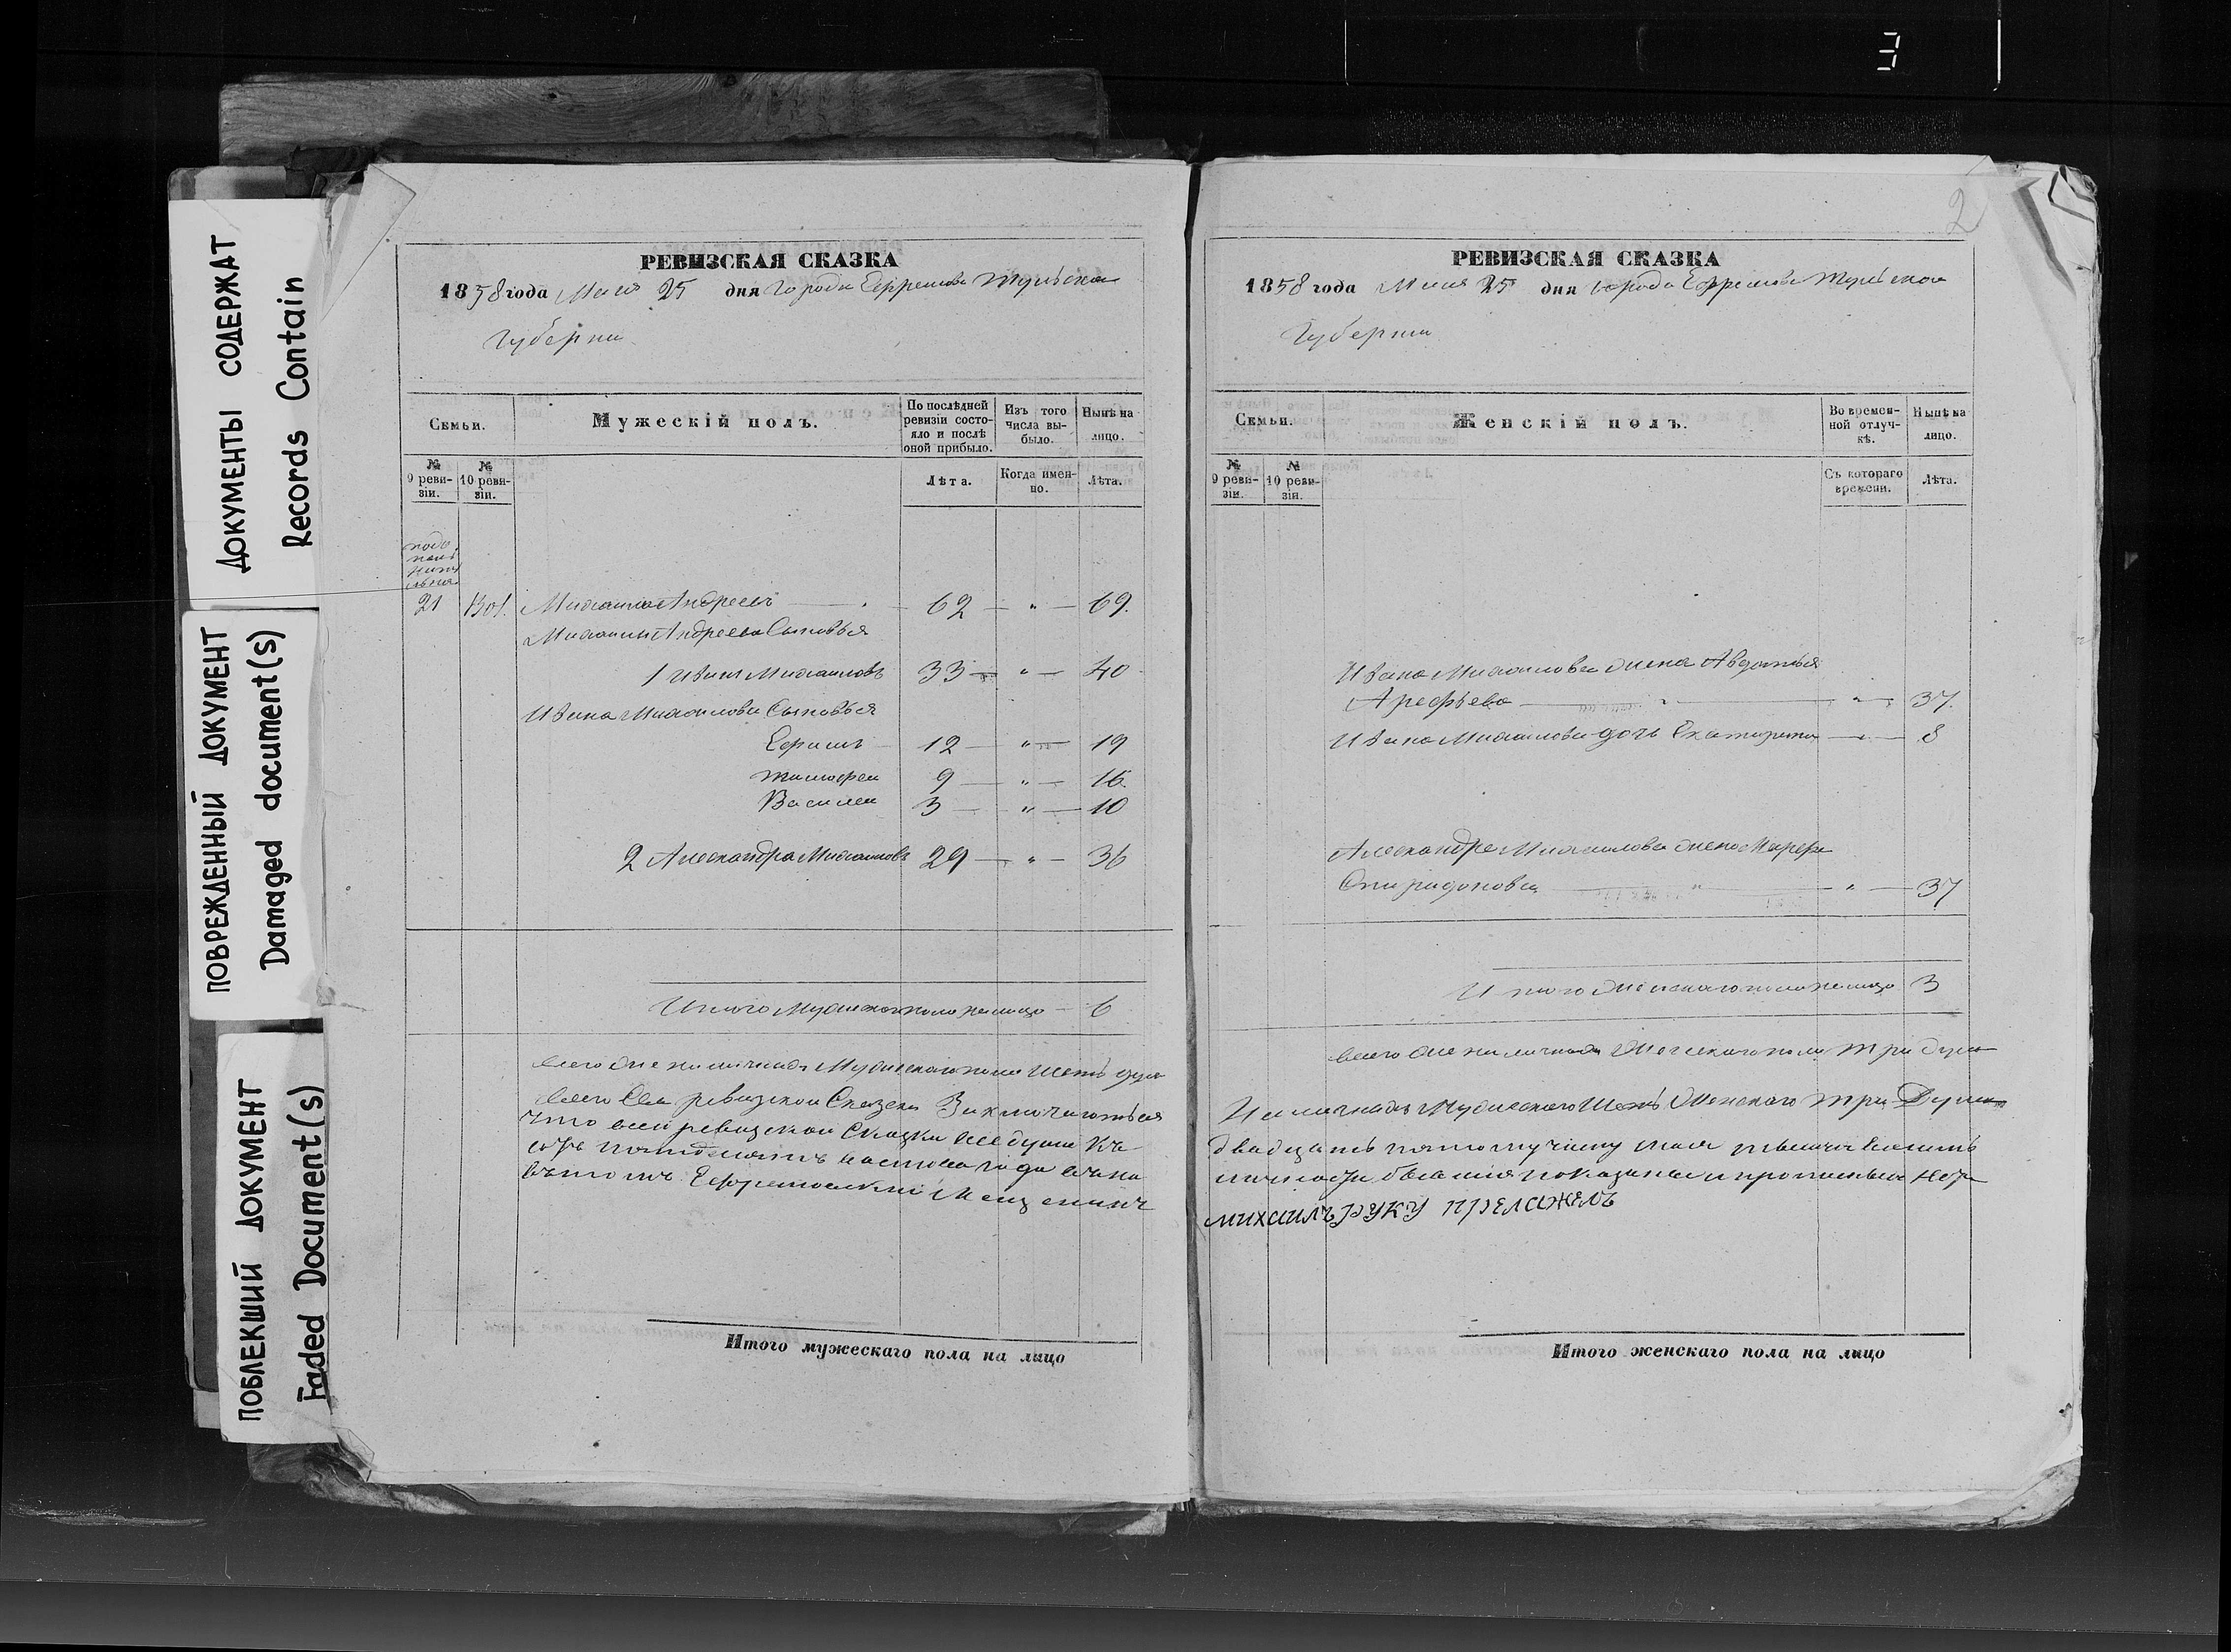 ДОКУМЕНТЫ СОДЕРЖАТ
Records Contain
ПОВРЕЖДЕННЫЙ ДОКУМЕНТ
Damaged document(s)
ПОБЛЕКШИЙ ДОКУМЕНТ
Faded Document(s)
РЕВИЗСКАЯ СКАЗКА
1858 года Маія 25 дня Города Ефремова Тульской
Губерніи
Семьи.
Мужескій полъ.
По послѣдней ревизіи состояло и послѣ оной прибыло.
Изъ того числа выбыло.
Нынѣ на лицо.
№ 9 ревизіи.
№ 10 ревизіи.
Лѣта.
Когда именно.
Лѣта.
21 Михаила Андреевъ 62 " 69.
Михаила Андреева Сыновья
1 Иванъ Михаиловъ 33 " 40
Ивана Михаилова Сыновья
Ефимъ 12 " 19
Тимофеи 9 " 16.
Василеи 3 " 10
2 Александра Михаиловъ 29 " 36
Итого Мужескаго пола на лицо 6
всего же на лицо Мужескаго пола шесть душъ
всего Сеи ревизскои Сказки Заключаются
что всеи ревизскои Сказки все души къ
Ефремовскии Мещенинъ
Итого мужескаго пола на лицо
2
РЕВИЗСКАЯ СКАЗКА
1858 года Маія 25 дня города Ефремова Тульской
Губерніи
Семьи.
Женскій полъ.
Во временной отлучкѣ.
Нынѣ на лицо.
№ 9 ревизіи.
№ 10 ревизіи.
Съ котораго времени.
Лѣта.
Ивана Михаилова жена Авдотья
Арефьева " " 37.
Ивана Михаилова дочь Екатерина " 8
Александра Михаилова жена Марфа
Спиридонова " " 37
Итого Женскаго пола на лицо 3
всего же на лицо Женскаго пола три души
Мужескаго Шесть Женскаго три Души
двадцать пятому числу маія
михаилъ РУКУ ПРЕЛАЖЕЛЪ
Итого женскаго пола на лицо